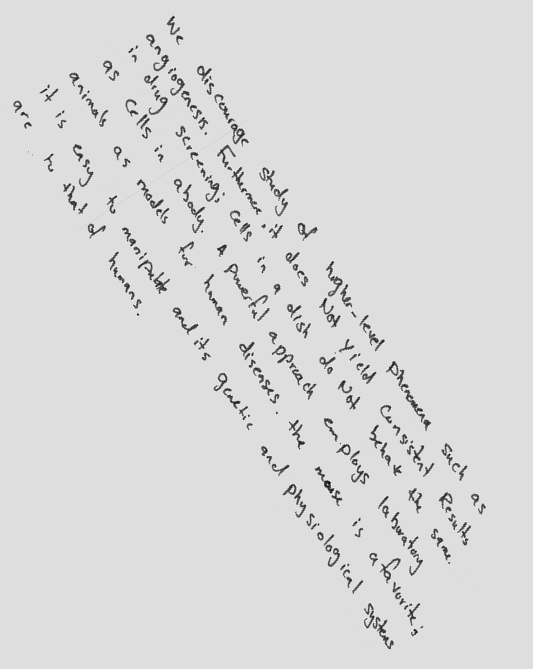 We discourage study of higher-level phenomena such as
angiogenesis. Furthermore it does Not yield Consistent Results
in drug screening; cells in a dish do Not behave the same
as Cells in abody. A powerful approach employs laboratory
animals as models for human diseases. the mouse is a favorite;
it is easy to manipulate and its genetic and physiological systems
are to that of humans.